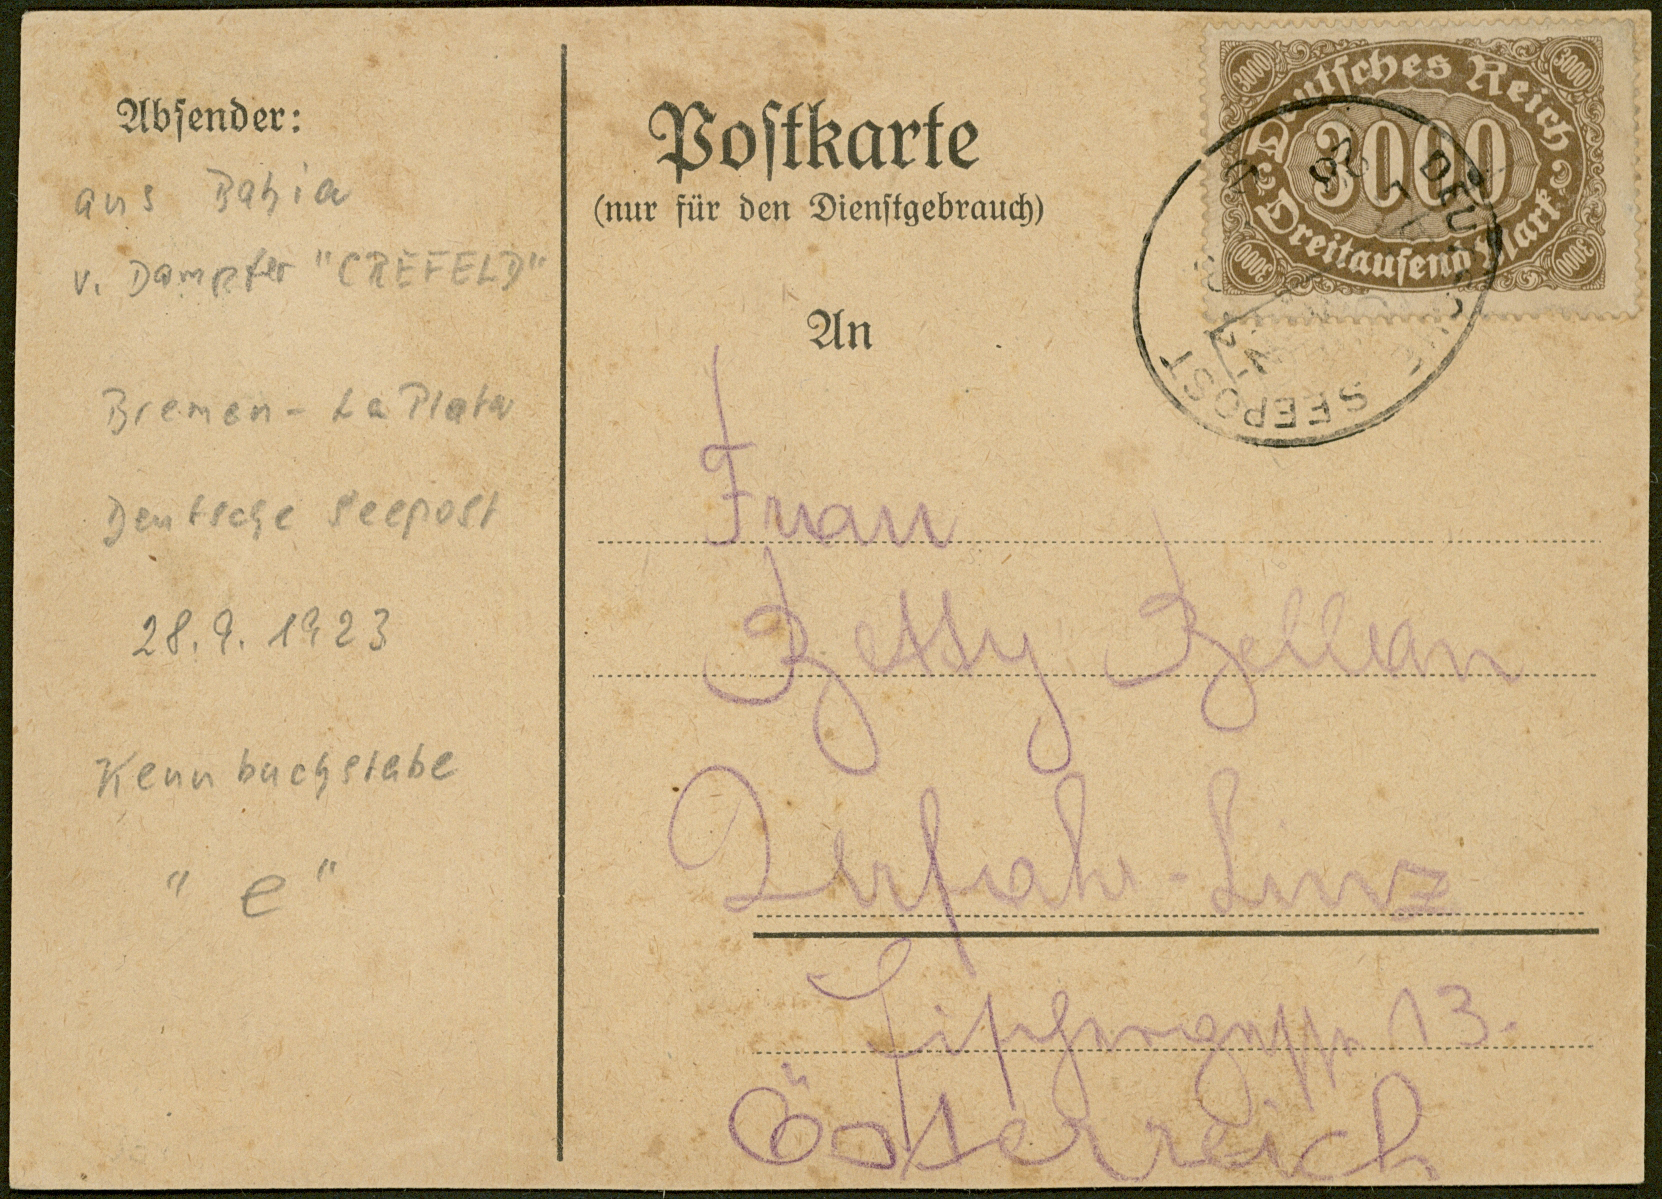 Absender:
aus Bahia
v. Dampfer "CREFELD"
Bremen - La Plata
Deutsche Seepost
28.9.1923
Kennbuchstabe
"e"
Postkarte
(nur für den Dienstgebrauch)
An
Frau
Betty
Urfahr-Linz
Fischergasse 13.
Österreich
3000
3000
Deutsches Reich
3000
Dreitausend Mark
3000
3000
SEEPOST